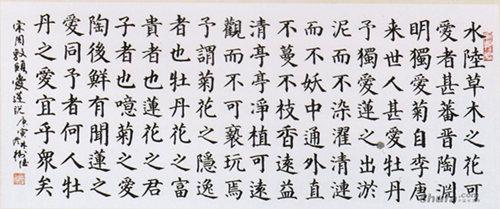 水陸草木之花可
愛者甚蕃晉陶淵
明獨愛菊自李唐
来世人甚愛牡丹
予獨愛蓮之出淤
泥而不染濯清漣
而不妖中通外直
不蔓不枝香遠益
清亭亭淨植可遠
觀而不可褻玩焉
予謂菊花之隱逸
者也牡丹花之富
貴者也蓮花之君
子者也噫菊之愛
陶後鮮有聞蓮之
愛同予者何人牡
丹之愛宜乎眾矣
宋周敦頤愛蓮説庚寅